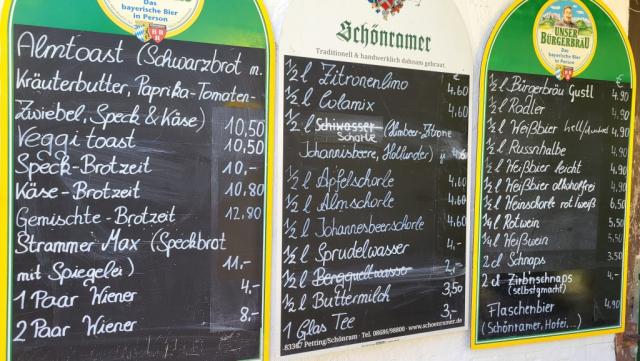 Das
bayerische Bier
in Person
Almtoast (Schwarzbrot m.
Kräuterbutter, Paprika-Tomaten-
Zwiebel, Speck & Käse) 10,50
Veggitoast 10,50
Speck-Brotzeit 10,-
Käse-Brotzeit 10,80
Gemischte-Brotzeit 12,80
Strammer Max (Speckbrot
mit Spiegelei) 11,-
1 Paar Wiener 4,-
2 Paar Wiener 8,-
Schönramer
Traditionell & handwerklich dahoam gebraut.
€
½ l Zitronenlimo 4,60
½ l Colamix 4,60
½ l Schiwasser (Himbeer-Zitrone
Schorle
Johannisbeere, Hollunder) je 4,60
½ l Apfelschorle 4,60
½ l Almschorle 4,60
½ l Johannisbeerschorle 4,60
½ l Sprudelwasser 4,-
½ l Bergquellwasser 2,-
½ l Buttermilch 3,50
1 Glas Tee 3,-
83367 Petting/Schönram · Tel. 08686/98800 · www.schoenramer.de
UNSER
BÜRGERBRÄU
Das
bayerische Bier
in Person
€
½ l Bürgerbräu Gustl 4,90
½ l Radler 4,90
½ l Weißbier hell/dunkel 4,90
½ l Russnhalbe 4,90
½ l Weißbier leicht 4,90
½ l Weißbier alkoholfrei 4,90
½ l Weinschorle rot/weiß 6,50
¼ l Rotwein 5,50
¼ l Weißwein 5,50
2 cl Schnaps 3,50
2 cl Zirbnschnaps 4,-
(selbstgmacht)
Flaschenbier 4,90
(Schönramer, Hofei,...)